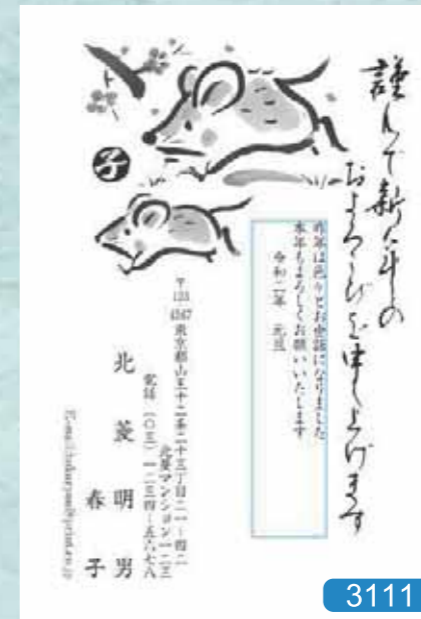 謹んで新年の
およろこびを申し上げます
昨年は色々とお世話になりました
本年もよろしくお願いいたします
令和二年 元旦
子
〒123
4567
東京都山王十二条二十三丁目二一-四二
北菱マンション一二三
電話(〇三)一二三四-五六七八
北菱明男
春子
3111